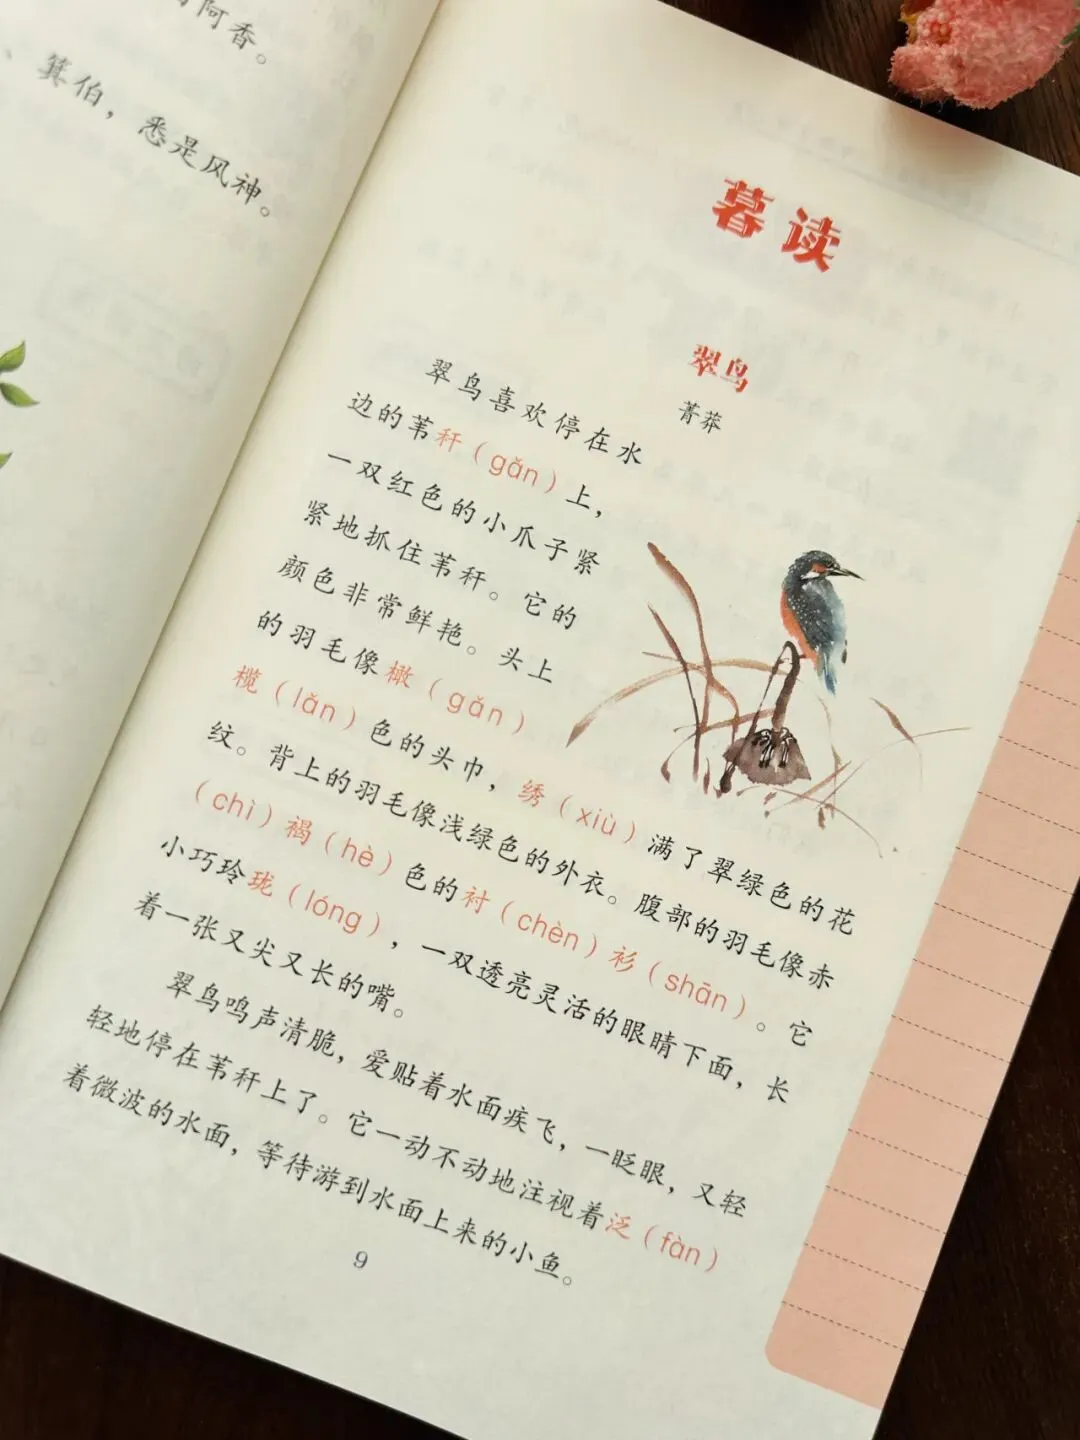 阿香。
、箕伯，悉是风神。
暮读
翠鸟
菁莽
翠鸟喜欢停在水
边的苇秆（gǎn）上，
一双红色的小爪子紧
紧地抓住苇秆。它的
颜色非常鲜艳。头上
的羽毛像橄（gǎn）
榄（lǎn）色的头巾，绣（xiù）满了翠绿色的花
纹。背上的羽毛像浅绿色的外衣。腹部的羽毛像赤
（chì）褐（hè）色的衬（chèn）衫（shān）。它
小巧玲珑（lóng），一双透亮灵活的眼睛下面，长
着一张又尖又长的嘴。
翠鸟鸣声清脆，爱贴着水面疾飞，一眨眼，又轻
轻地停在苇秆上了。它一动不动地注视着泛（fàn）
着微波的水面，等待游到水面上来的小鱼。
9